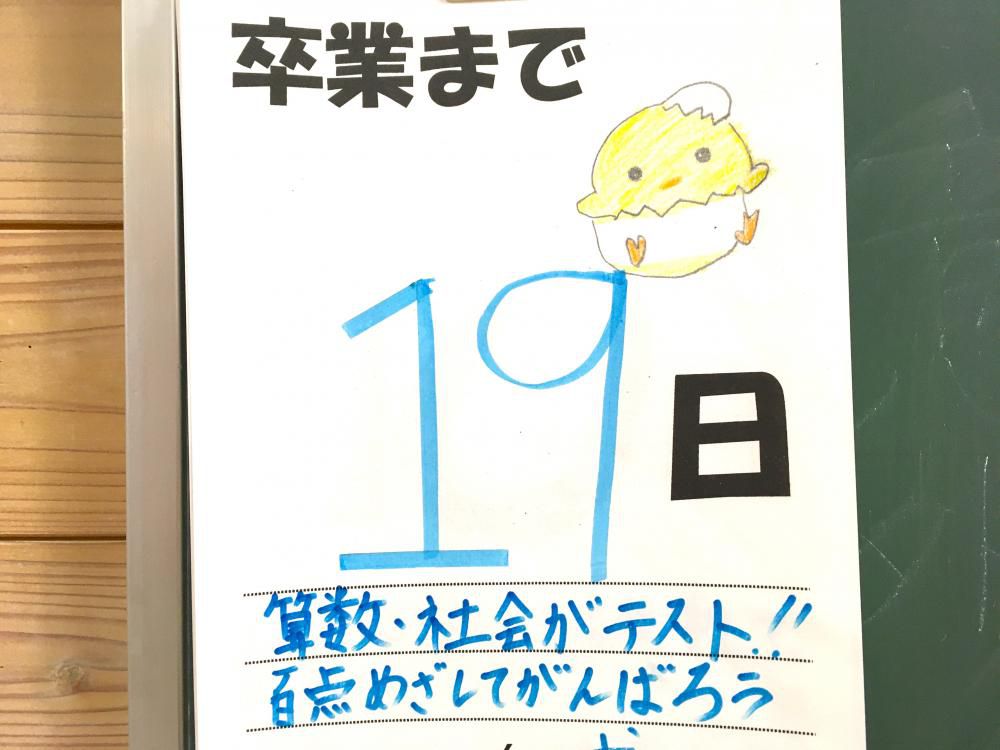 卒業まで
19
日
算数・社会がテスト!!
百点めざしてがんばろう